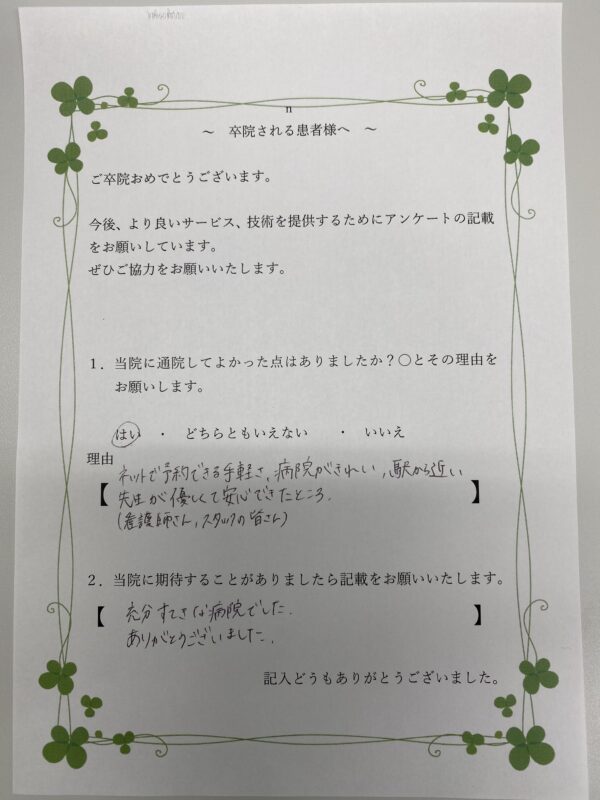 n
～ 卒院される患者様へ ～
ご卒院おめでとうございます。
今後、より良いサービス、技術を提供するためにアンケートの記載
をお願いしています。
ぜひご協力をお願いいたします。
１．当院に通院してよかった点はありましたか？〇とその理由を
お願いします。
はい ・ どちらともいえない ・ いいえ
理由
ネットで予約できる手軽さ、病院がきれい、駅から近い
【 先生が優しくて安心できたところ. 】
(看護師さん, スタッフの皆さん)
２．当院に期待することがありましたら記載をお願いいたします。
【 充分すてきな病院でした. 】
ありがとうございました.
記入どうもありがとうございました。